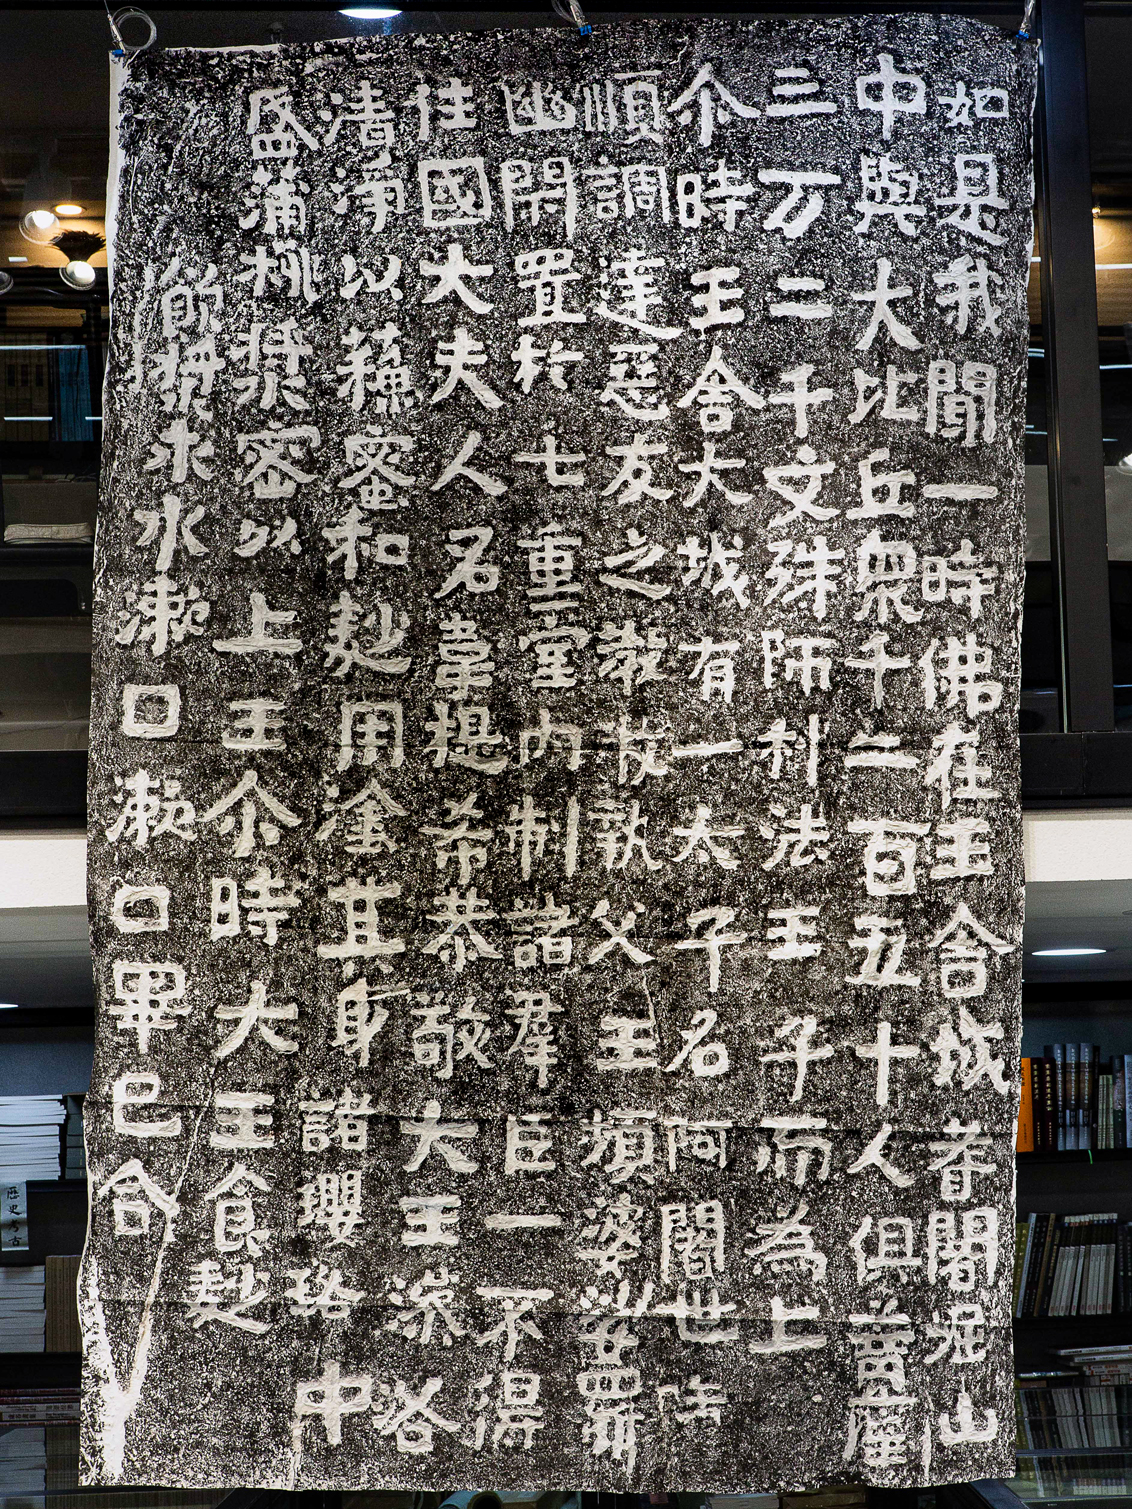 如是我聞一時佛在王舍城耆闍堀山
中與大比丘眾千二百五十人俱菩薩
三万二千文殊師利法王子而為上
尒時王舍大城有一太子名阿闍世隨
順調達惡友之教收執父王頻婆娑羅
幽閇置於七重室內制諸羣臣一不得
往國大夫人名韋提希恭敬大王澡浴
清淨以蘇蜜和麨用塗其身諸瓔珞中
盛蒲桃漿密以上王尒時大王食麨
飲漿求水漱口漱口畢已合